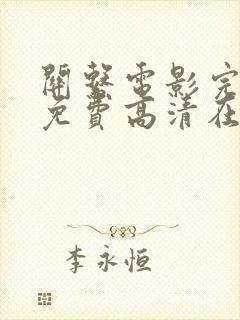 開發電影完
免費高清在
李永恒